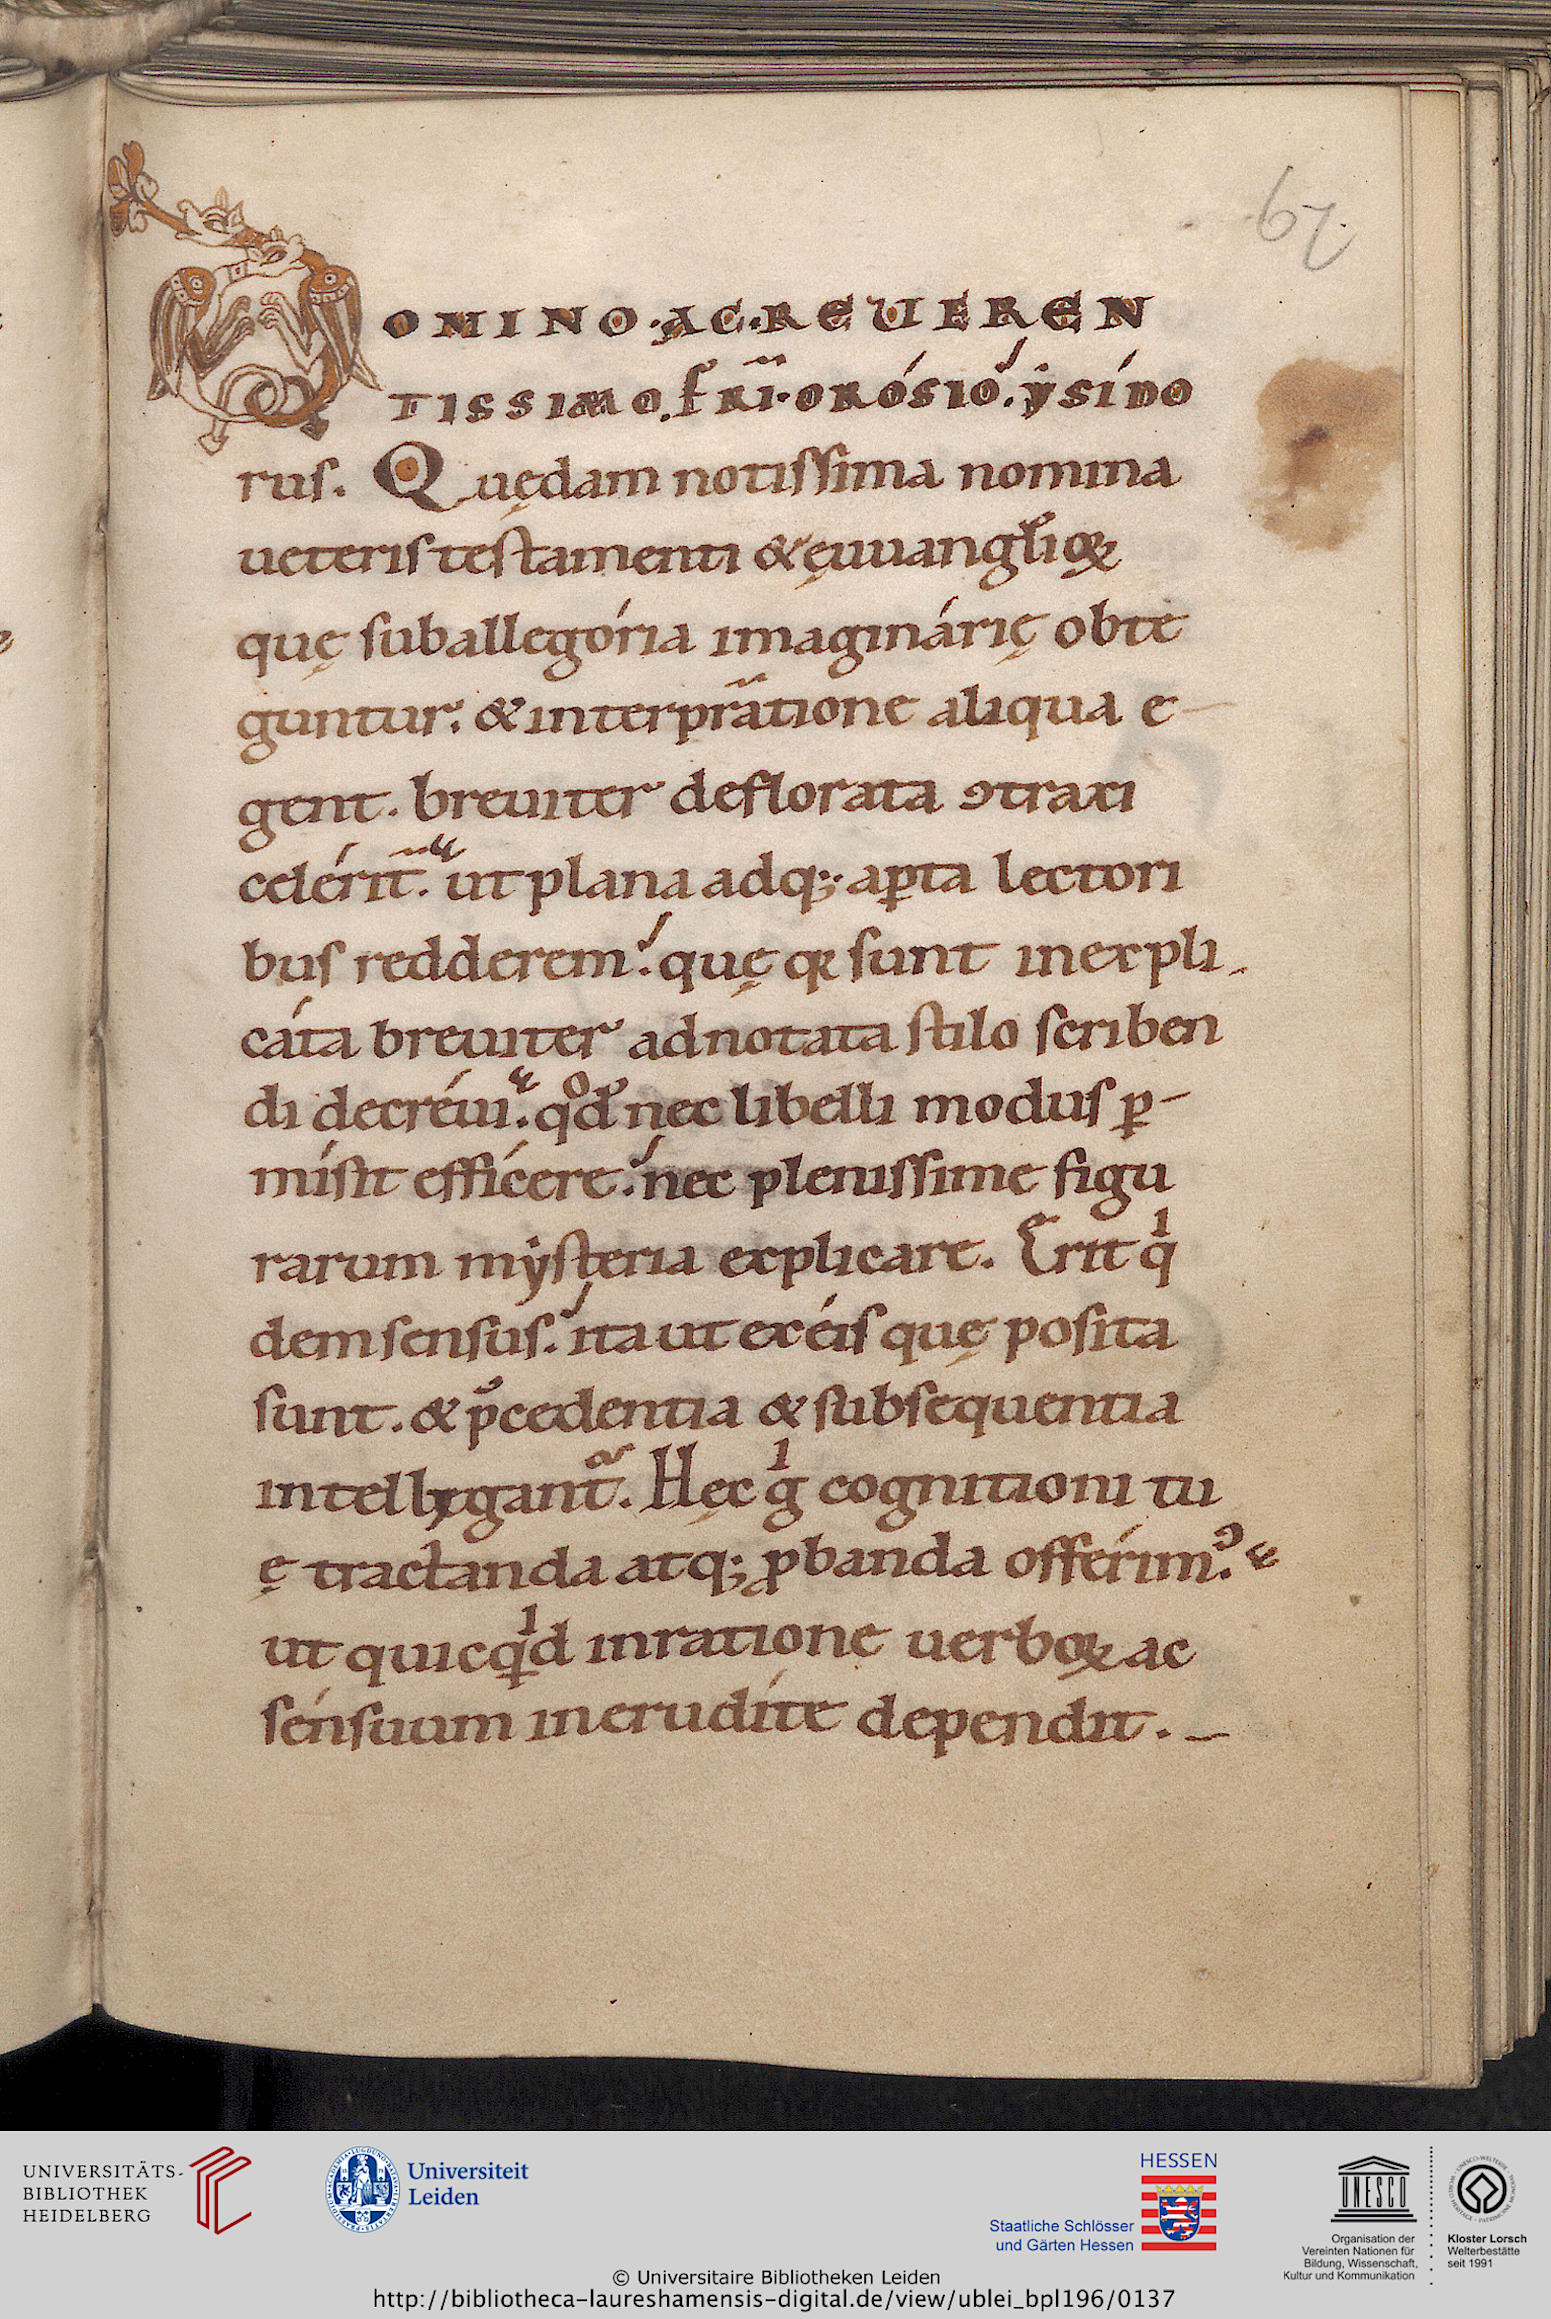 67.
DOMINO·AC·REUEREN
TISSIMO. frī·orósio. ẏsído
rus. Quędam notissima nomina
ueteris testamenti & ęuuangl̄ioꝝ
quę suballegória imaginárię obte
guntur. & interprа̄tione aliqua e-
gent. breuiter deflorata ↄtraxi
celérit̄. ut plana adq;. aꝑta lectori
bus redderem. quę qꝛ sunt inexpli-
cáta breuiter adnotata stilo scriben
di decréui. qͦd nec libelli modus ꝑ-
misit effícere. nec plenissime figu
rarum mẏsteria explicare. Erit qͥ
dem sensus. ita ut ex éis quę posita
sunt. & p̄cedentia & subsequentia
intellygant̄. Hęc gͥ cognitioni tu
ę tractanda atq; ꝓbanda offérimꝰ.
ut quicqͥd inratione uerboꝝ ac
sénsuum inerudíte dependit.
UNIVERSITÄTS-
BIBLIOTHEK
HEIDELBERG
Universiteit
Leiden
HESSEN
Staatliche Schlösser
und Gärten Hessen
UNESCO
Organisation der
Vereinten Nationen für
Bildung, Wissenschaft,
Kultur und Kommunikation
Kloster Lorsch
Welterbestätte
seit 1991
© Universitaire Bibliotheken Leiden
http://bibliotheca-laureshamensis-digital.de/view/ublei_bpl196/0137